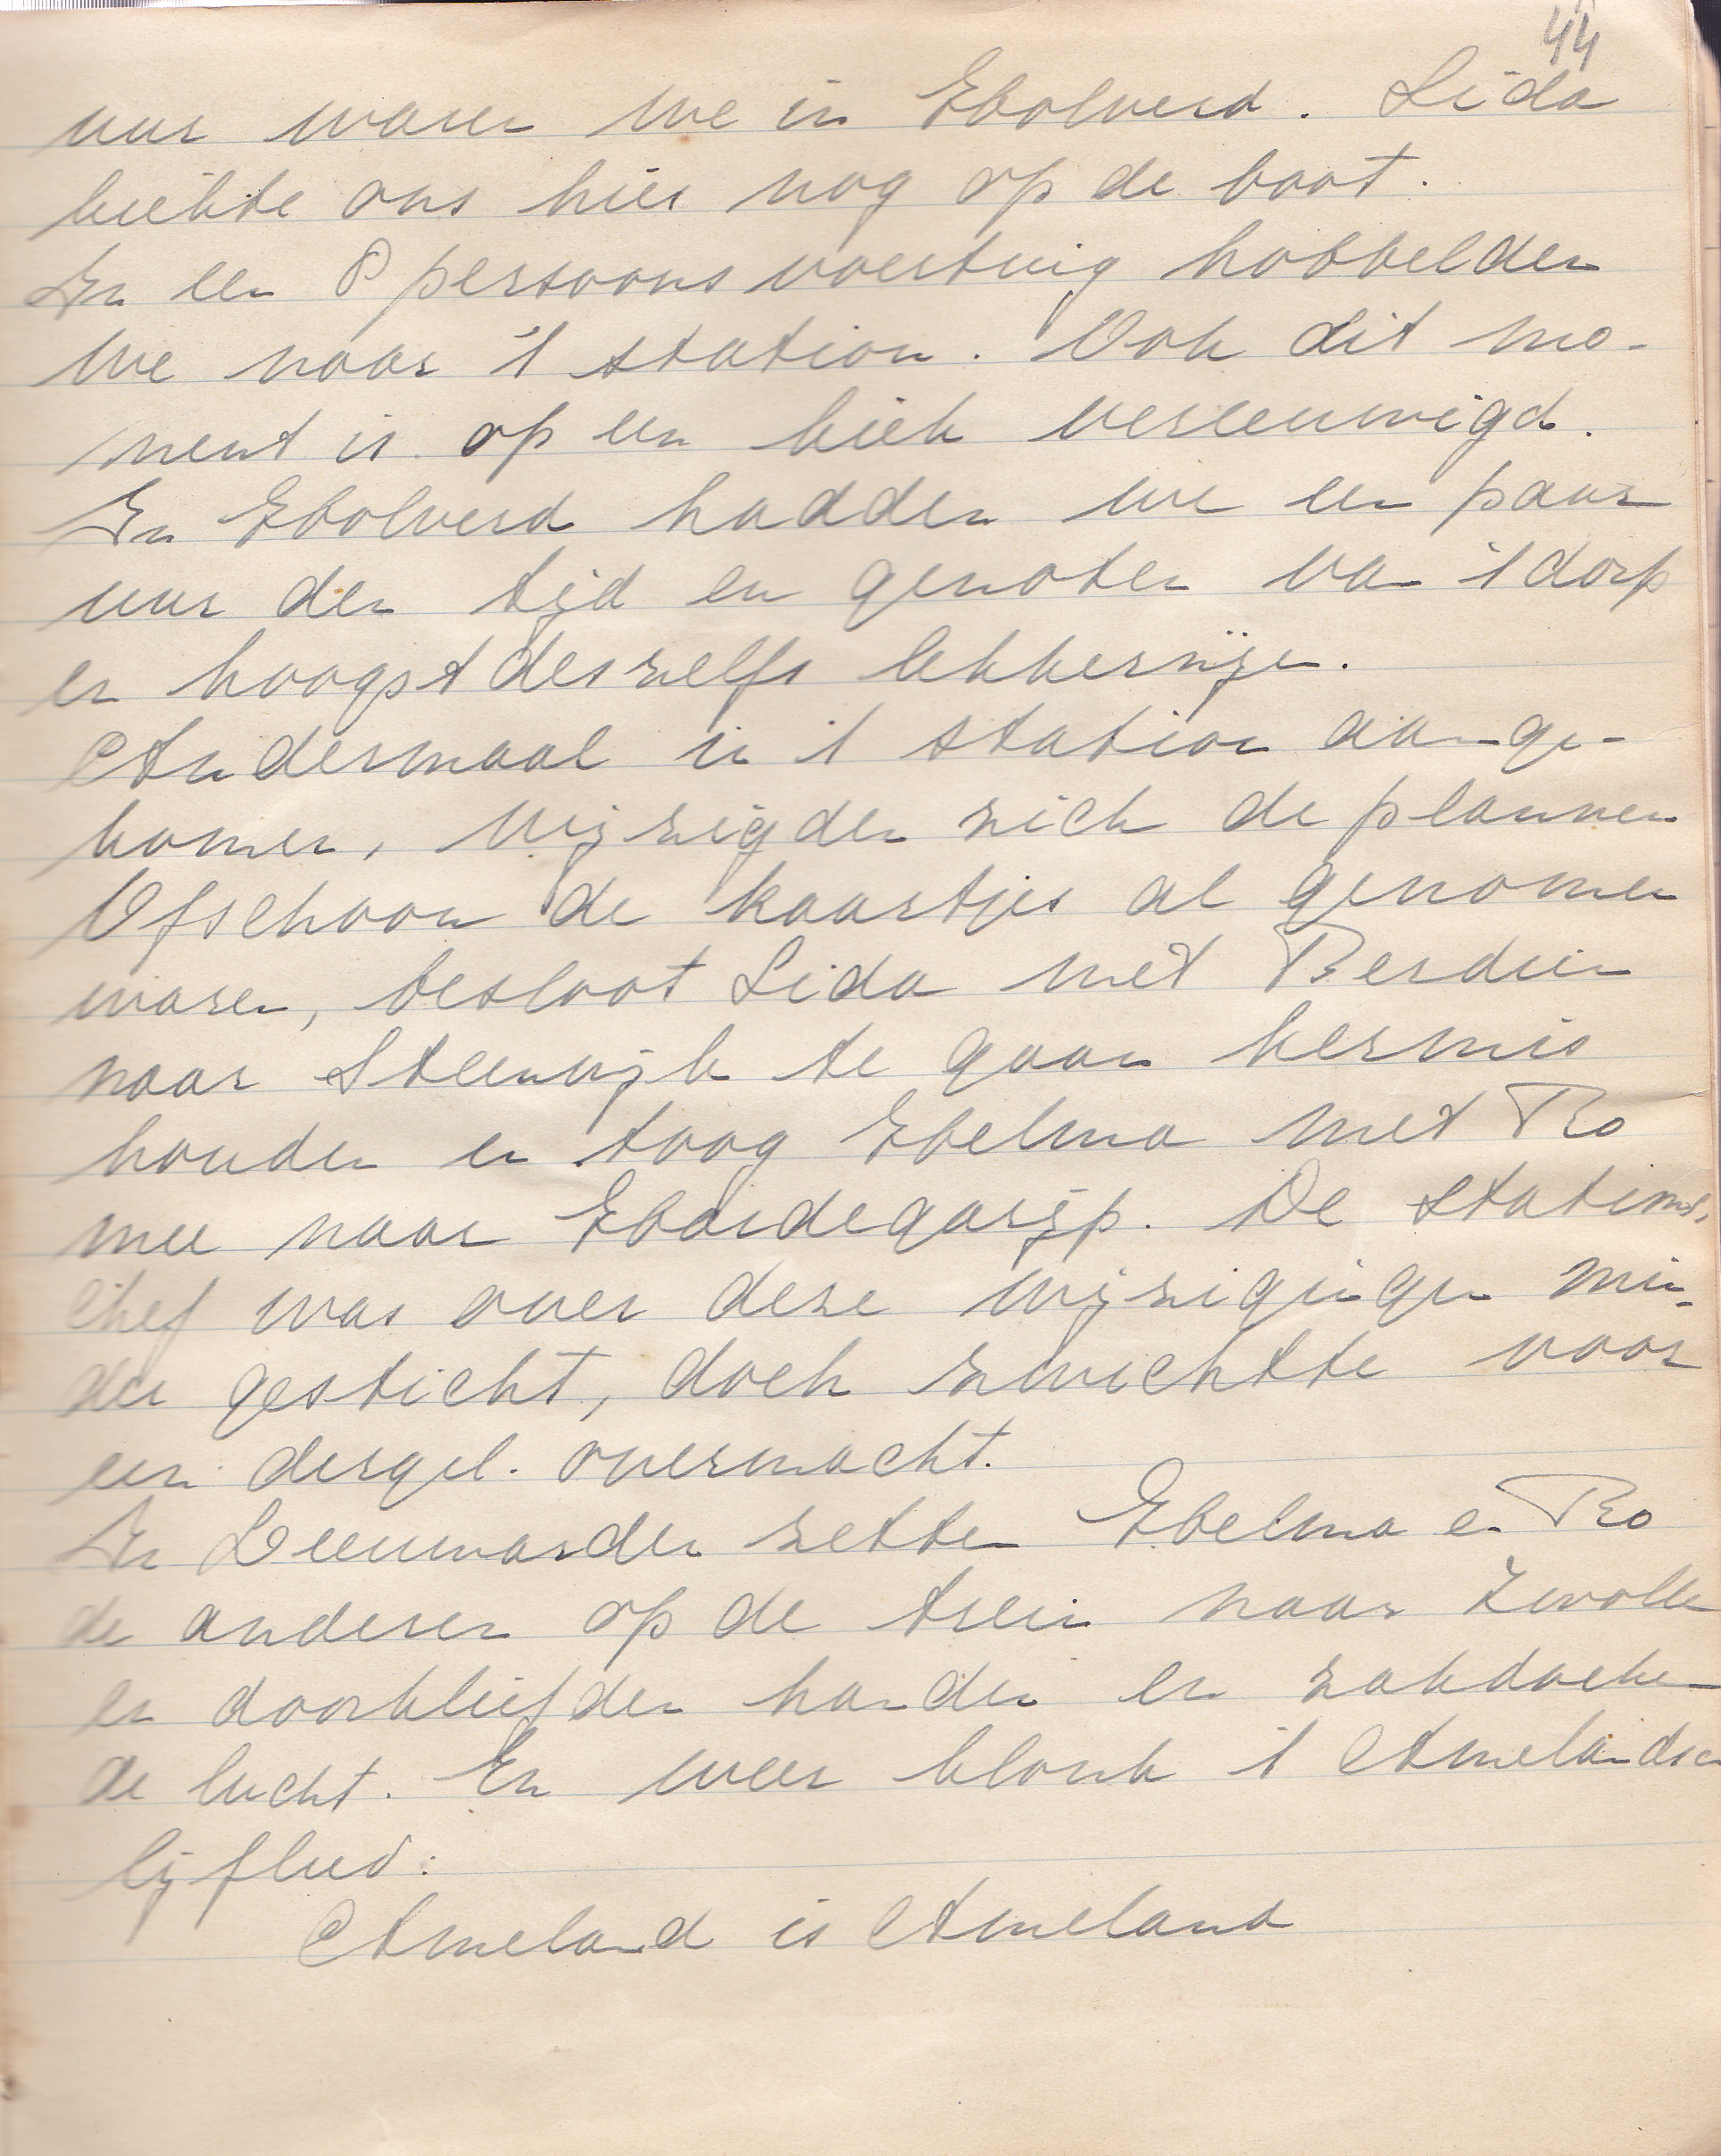 44
uur waren we in Holwerd. Lida
kiekte ons hier nog op de boot.
In een 8 persoons voertuig hobbelden
we naar 't station. Ook dit mo-
ment is op een kiek vereeuwigd.
In Holwerd hadden we een paar
uur den tijd en genoten van 't dorp
en hoogst deszelfs lekkernijen.
Andermaal in 't station aange-
komen, wijzigden zich de plannen
Ofschoon de kaartjes al genomen
waren, besloot Lida met Berdien
naar Steenwijk te gaan kermis
houden en toog Helma met Ro
mee naar Hardegarijp. De stations-
chef was over deze wijzigingen min-
der gesticht, doch zwichtte voor
een dergel. overmacht.
In Leeuwarden zetten Helma en Ro
de anderen op de trein naar Zwolle
en doorkliefden handen en zakdoeken
de lucht. En weer klonk 't Amelandsen
lijflied:
Ameland is Ameland